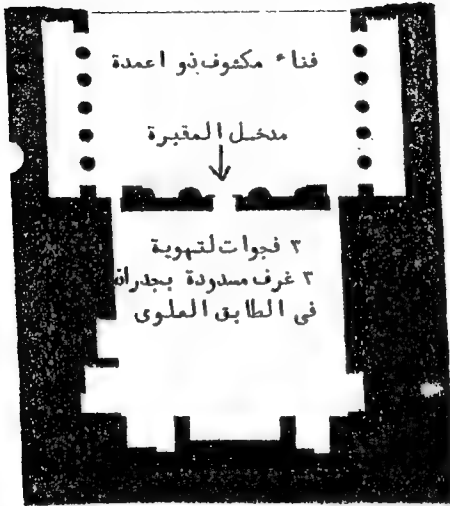 فناء مكشوف ذو اعمدة
مدخل المقبرة
٢ فجوات لتهوية
٣ غرف مسدودة بجدران
في الطابق العلوى